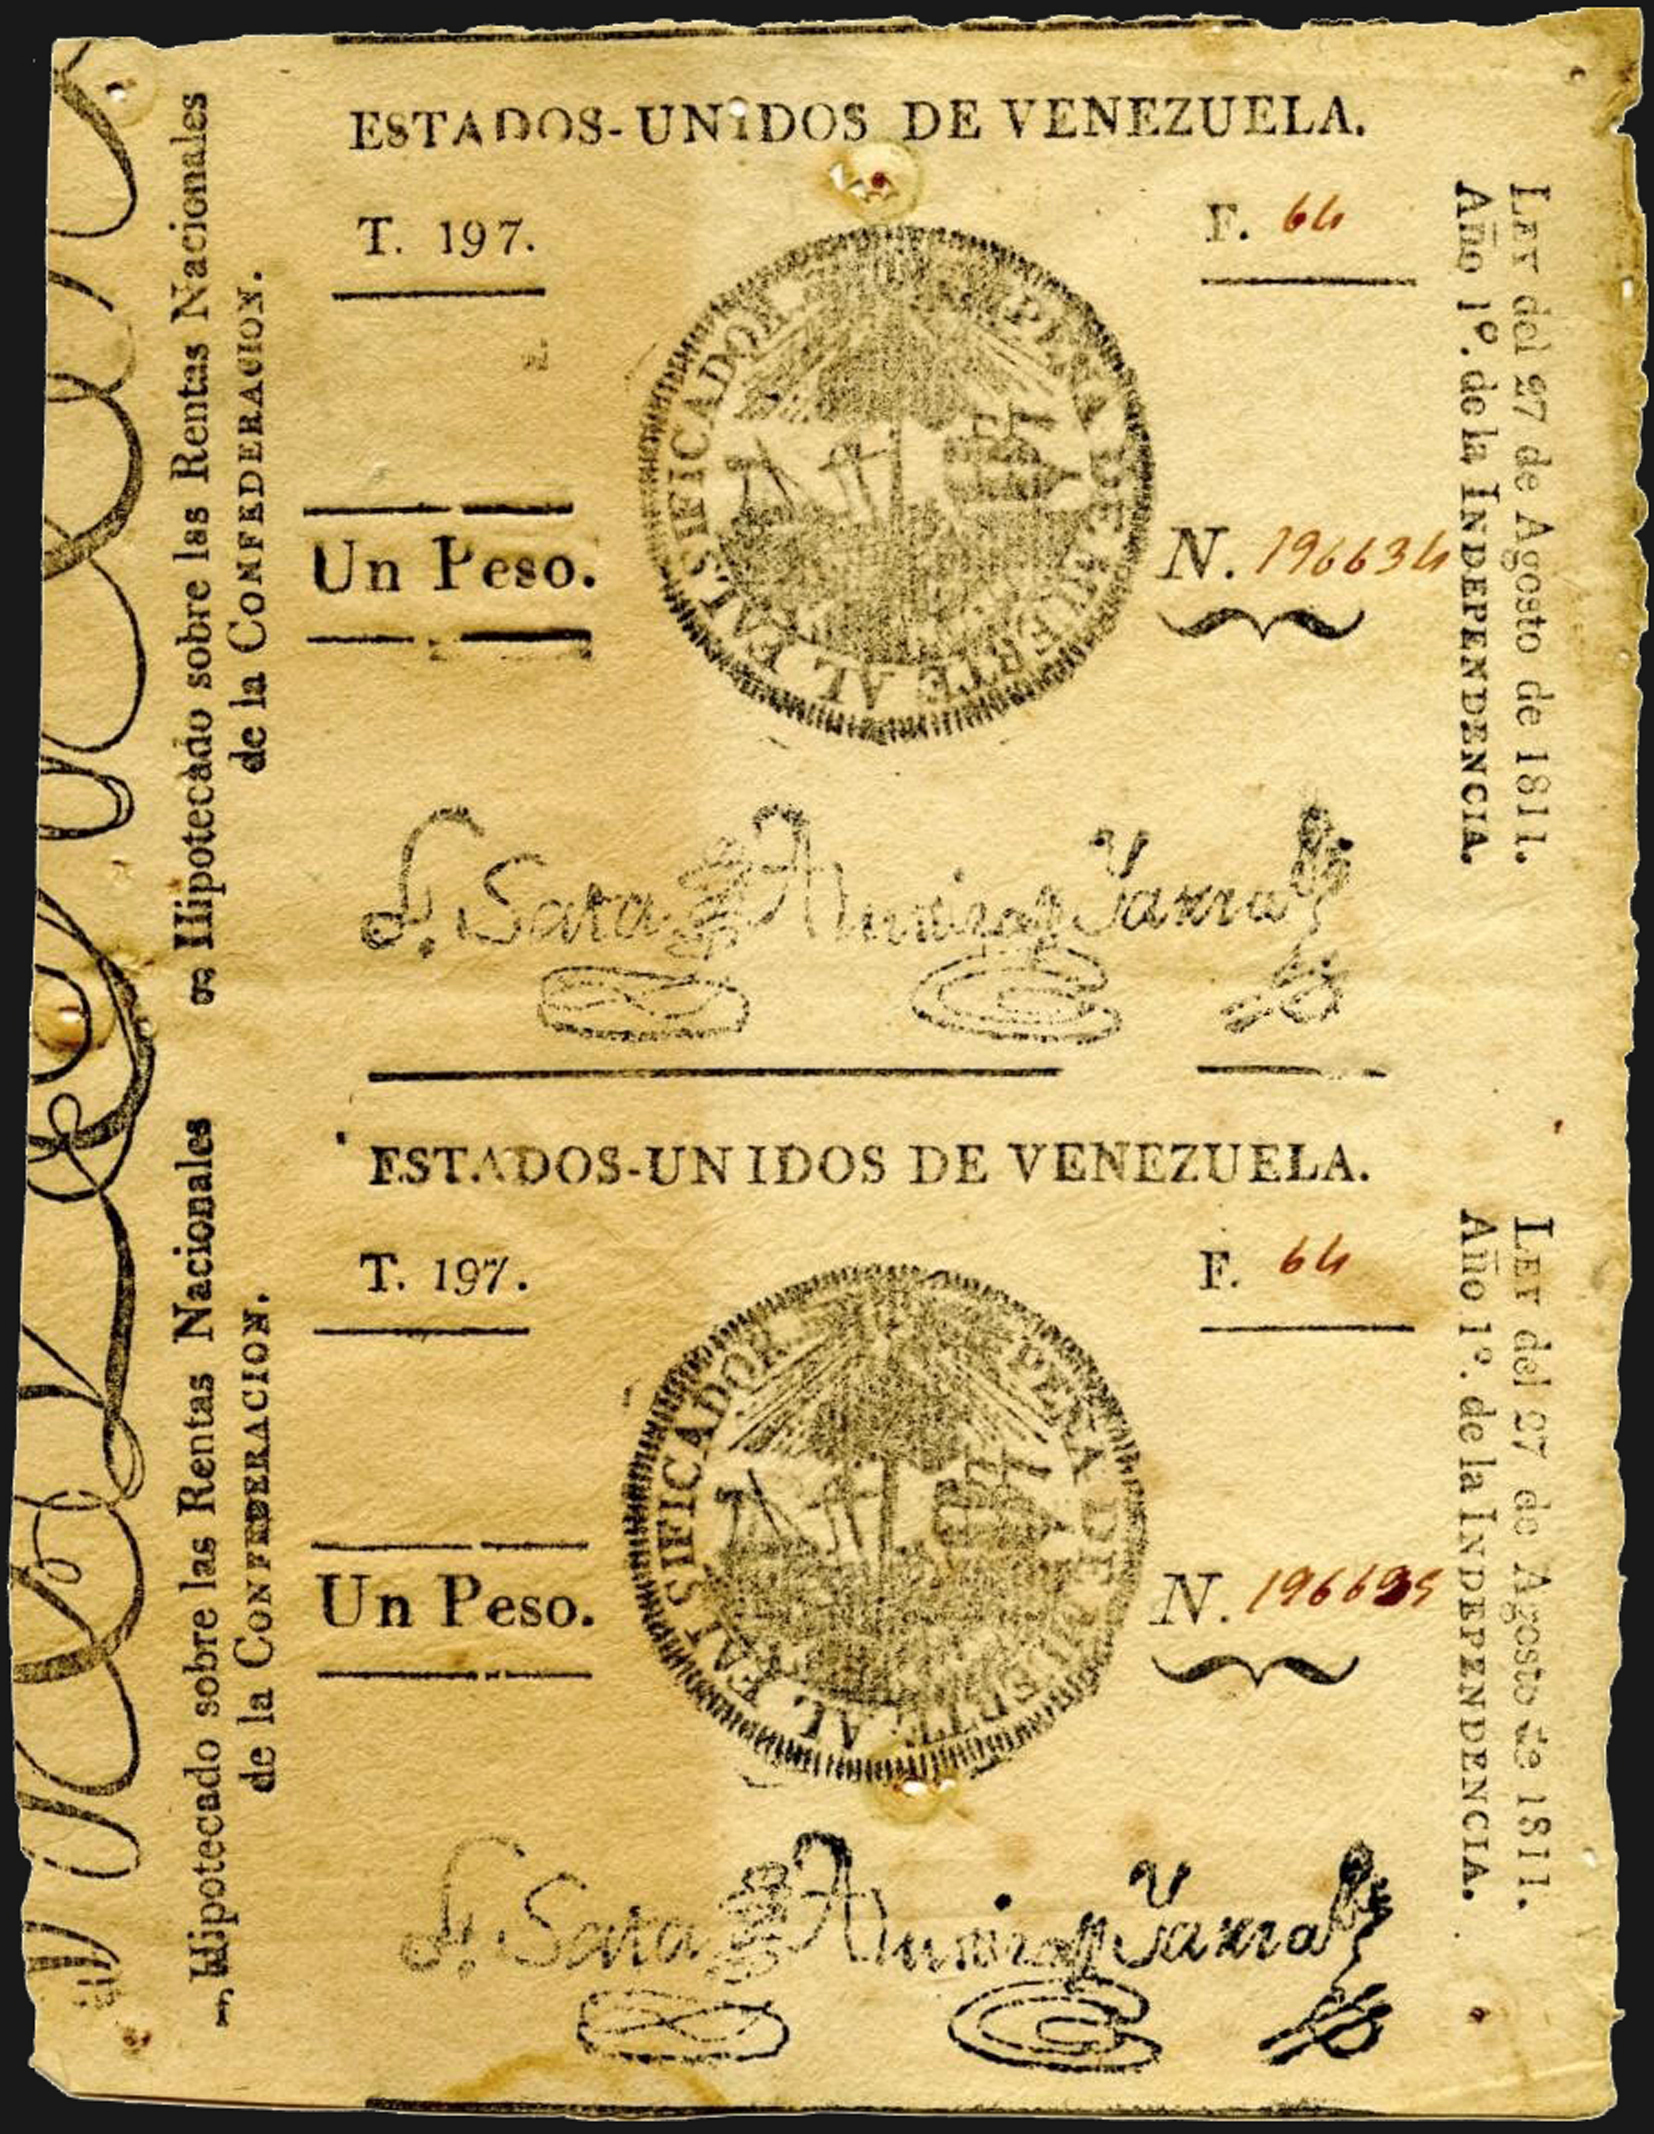 ESTADOS-UNiDOS DE VENEZUELA.
T. 197.
F. 64
Un Peso.
PENA DE MUERTE AL FALSIFICADOR
N. 196634
Hipotecado sobre las Rentas Nacionales
de la CONFEDERACION.
LEY del 27 de Agosto de 1811.
Año 1º. de la INDEPENDENCIA.
ESTADOS-UNIDOS DE VENEZUELA.
T. 197.
F. 64
Un Peso.
PENA DE MUERTE AL FALSIFICADOR
N. 196635
Hipotecado sobre las Rentas Nacionales
de la CONFEDERACION.
LEY del 27 de Agosto de 1811.
Año 1º. de la INDEPENDENCIA.